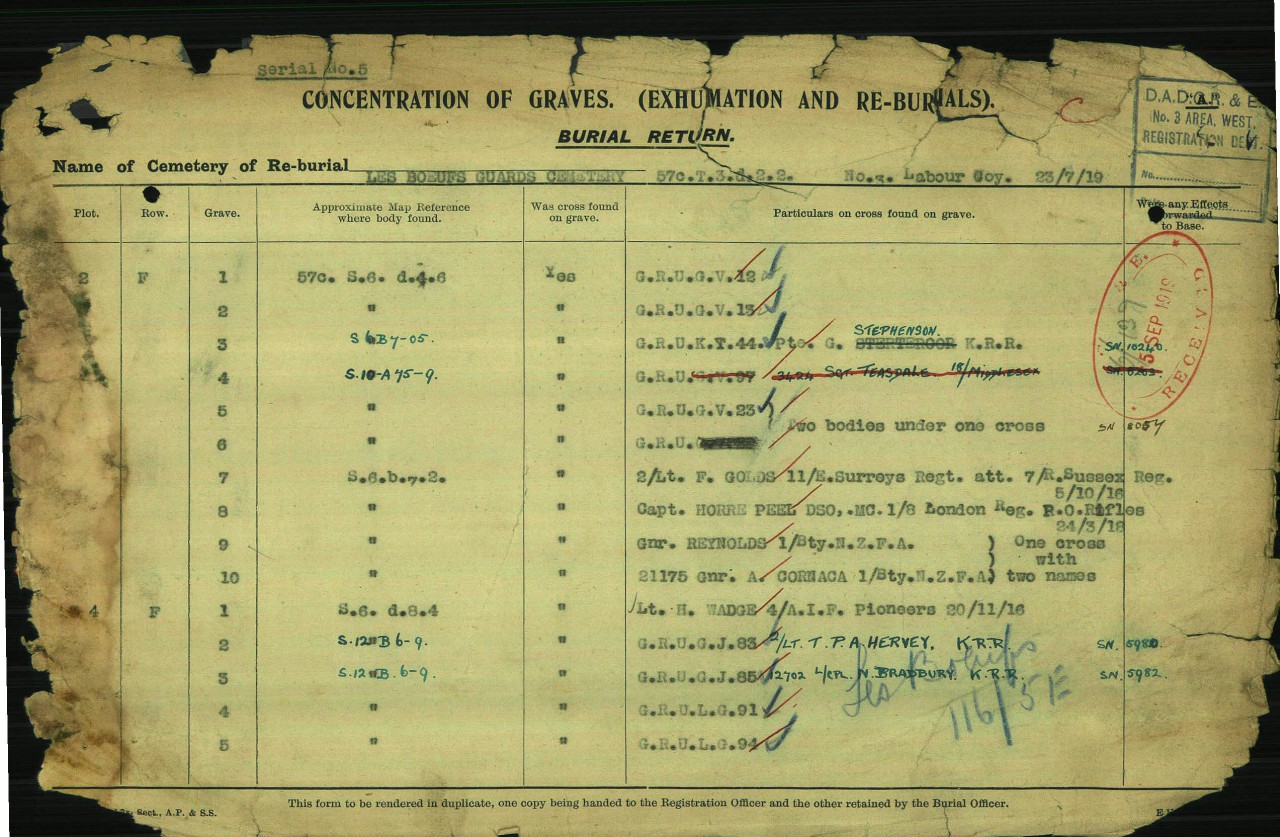 Serial No.5
CONCENTRATION OF GRAVES. (EXHUMATION AND RE-BURIALS).
C
BURIAL RETURN.
& E.
No. 3 AREA, WEST,
REGISTRATION DEPT.
No.
Name of Cemetery of Re-burial LES BOEUFS GUARDS CEMETERY 57c.T.3.d.2.2. No.3. Labour Coy. 23/7/19
Plot. Row. Grave. Approximate Map Reference where body found. Was cross found on grave. Particulars on cross found on grave. Were any Effects forwarded to Base.
2 F 1 57c. S.6. d.4.6 Yes G.R.U.G.V.12
2 " " G.R.U.G.V.13
STEPHENSON.
3 S 6 B 7-05. " G.R.U.K.Y.44. Pte. G. K.R.R. SN. 10240.
4 S.10-A 75-9. " G.R.U.G.V.97 3424 SGT. TEASDALE. 18/MIDDLESEX SN. 8203.
5 " " G.R.U.G.V.23
Two bodies under one cross SN 8054
6 " " G.R.U.
7 S.6.b.7.2. " 2/Lt. F. GOLDS 11/E.Surreys Regt. att. 7/R.Sussex Reg.
5/10/16
8 " " Capt. HORRE PEEL DSO,.MC. 1/8 London Reg. P.O.Rifles
24/3/18
9 " " Gnr. REYNOLDS 1/Bty.N.Z.F.A. ) One cross
) with
10 " " 21175 Gnr. A. CORNACA 1/Bty.N.Z.F.A) two names
4 F 1 S.6. d.8.4 Lt. H. WADGE 4/A.I.F. Pioneers 20/11/16
2 S.12 B 6-9. " G.R.U.G.J.83 2/LT. T. P. A. HERVEY. K.R.R. SN. 5980.
3 S.12 B. 6-9. " G.R.U.G.J.85 12702 L/CPL. N. BRADBURY. K.R.R. SN. 5982.
4 " " G.R.U.L.G.91
5 " " G.R.U.L.G.94
Les Boeufs
116/5E
5 SEP 1919
RECEIVED
Sect., A.P. & S.S.
This form to be rendered in duplicate, one copy being handed to the Registration Officer and the other retained by the Burial Officer.